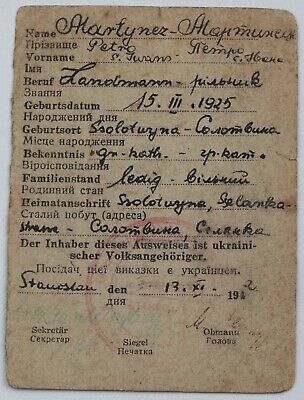 Name Martynez - Мартинець
Прізвище Petro Петро
Vorname s. Iwans с. Івана
Імя
Beruf Landmann - рільник
Звання
Geburtsdatum 15. III. 1925
Народжений дня
Geburtsort Ssolotwyna - Солотвина
Місце народження
Bekenntnis gr.-kath. - гр. кат.
Віроісповідання
Familienstand ledig - вільний
Родинний стан
Heimatanschrift Ssolotwyna,
Сталий побут (адреса)
- Солотвина
Der Inhaber dieses Ausweises ist ukraini-
scher Volksangehöriger.
Посідач цієї виказки є українцем.
Stanislau den 13. XI. 1942
дня
Sekretär Siegel Obmann
Секретар Печатка Голова